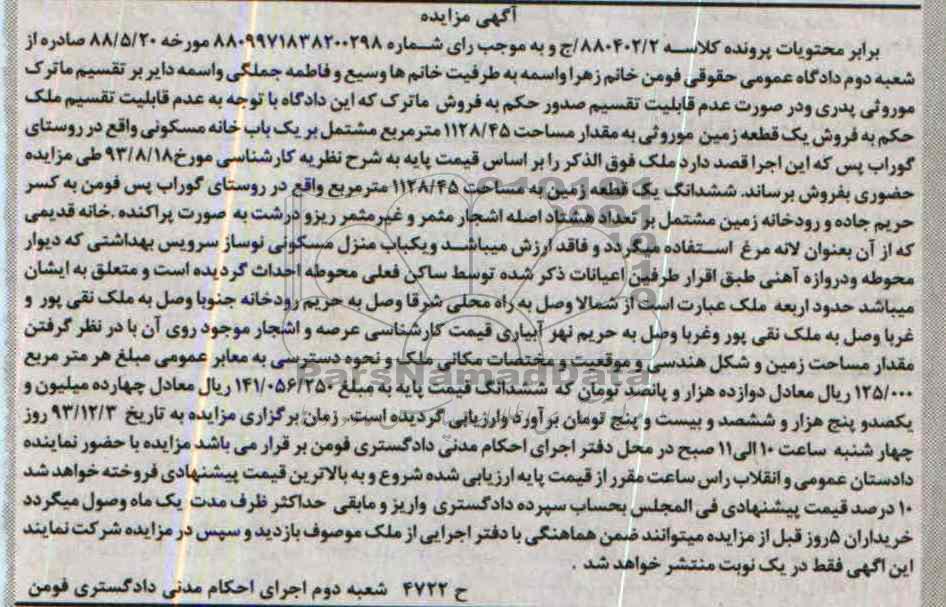 آگهی مزایده
برابر محتویات پرونده کلاسه ۸۸۰۴۰۲/۲/ج و به موجب رای شماره ۸۸۰۹۹۷۱۸۳۸۲۰۰۲۹۸ مورخه ۸۸/۵/۲۰ صادره از
شعبه دوم دادگاه عمومی حقوقی فومن خانم زهرا واسمه به طرفیت خانم ها وسیع و فاطمه جملگی واسمه دایر بر تقسیم ماترک
موروثی پدری ودر صورت عدم قابلیت تقسیم صدور حکم به فروش ماترک که این دادگاه با توجه به عدم قابلیت تقسیم ملک
حکم به فروش یک قطعه زمین موروثی به مقدار مساحت ۱۱۲۸/۴۵ مترمربع مشتمل بر یک باب خانه مسکونی واقع در روستای
گوراب پس که این اجرا قصد دارد ملک فوق الذکر را بر اساس قیمت پایه به شرح نظریه کارشناسی مورخ ۹۳/۸/۱۸ طی مزایده
حضوری بفروش برساند. ششدانگ یک قطعه زمین به مساحت ۱۱۲۸/۴۵ مترمربع واقع در روستای گوراب پس فومن به کسر
حریم جاده و رودخانه زمین مشتمل بر تعداد هشتاد اصله اشجار مثمر و غیرمثمر ریزو درشت به صورت پراکنده .خانه قدیمی
که از آن بعنوان لانه مرغ استفاده میگردد و فاقد ارزش میباشد ویکباب منزل مسکونی نوساز سرویس بهداشتی که دیوار
محوطه ودروازه آهنی طبق اقرار طرفین اعیانات ذکر شده توسط ساکن فعلی محوطه احداث گردیده است و متعلق به ایشان
میباشد حدود اربعه ملک عبارت است از شمالا وصل به راه محلی شرقا وصل به حریم رودخانه جنوبا وصل به ملک نقی پور و
غربا وصل به ملک نقی پور وغربا وصل به حریم نهر آبیاری قیمت کارشناسی عرصه و اشجار موجود روی آن با در نظر گرفتن
مقدار مساحت زمین و شکل هندسی و موقعیت و مختصات مکانی ملک و نحوه دسترسی به معابر عمومی مبلغ هر متر مربع
۱۲۵/۰۰۰ ریال معادل دوازده هزار و پانصد تومان که ششدانگ قیمت پایه به مبلغ ۱۴۱/۰۵۶/۲۵۰ ریال معادل چهارده میلیون و
یکصدو پنج هزار و ششصد و بیست و پنج تومان برآورد وارزیابی گردیده است. زمان برگزاری مزایده به تاریخ ۹۳/۱۲/۳ روز
چهار شنبه ساعت ۱۰ الی۱۱ صبح در محل دفتر اجرای احکام مدنی دادگستری فومن بر قرار می باشد مزایده با حضور نماینده
دادستان عمومی و انقلاب راس ساعت مقرر از قیمت پایه ارزیابی شده شروع و به بالاترین قیمت پیشنهادی فروخته خواهد شد
۱۰ درصد قیمت پیشنهادی فی المجلس بحساب سپرده دادگستری واریز و مابقی حداکثر ظرف مدت یک ماه وصول میگردد
خریداران ۵روز قبل از مزایده میتوانند ضمن هماهنگی با دفتر اجرایی از ملک موصوف بازدید و سپس در مزایده شرکت نمایند
این آگهی فقط در یک نوبت منتشر خواهد شد .
ح ۴۷۲۲ شعبه دوم اجرای احکام مدنی دادگستری فومن
ParsNamadData